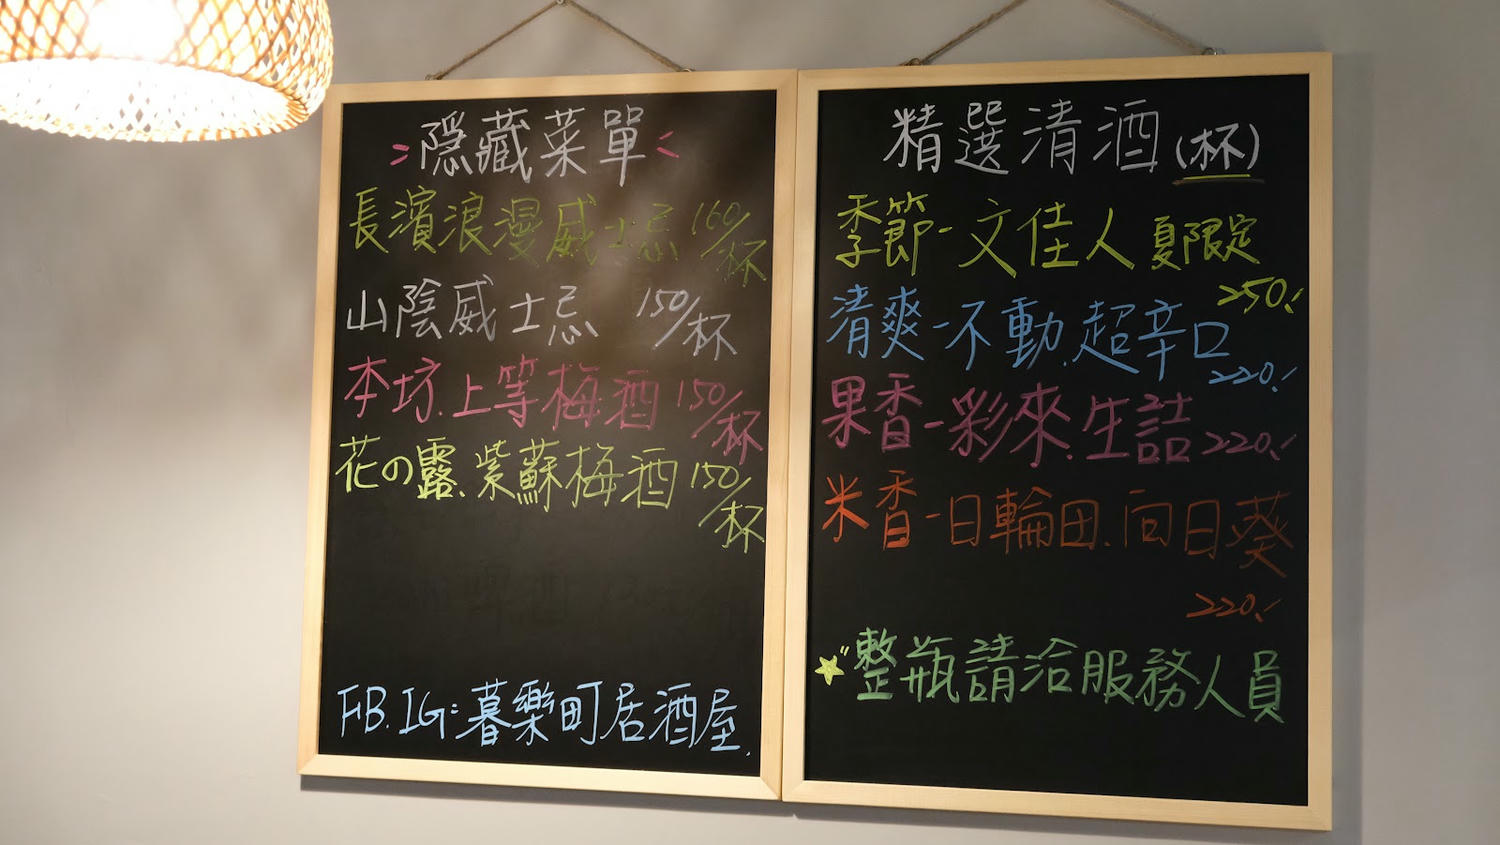 隱藏菜單
長濱浪漫威士忌 160/杯
山陰威士忌 150/杯
本坊.上等梅酒 150/杯
花の露.紫蘇梅酒 150/杯
FB.IG:暮樂町居酒屋.
精選清酒(杯)
季節-文佳人 夏限定
250.-
清爽-不動.超辛口
220.-
果香-彩來.生詰 220.-
米香-日輪田.向日葵
220.-
整瓶請洽服務人員